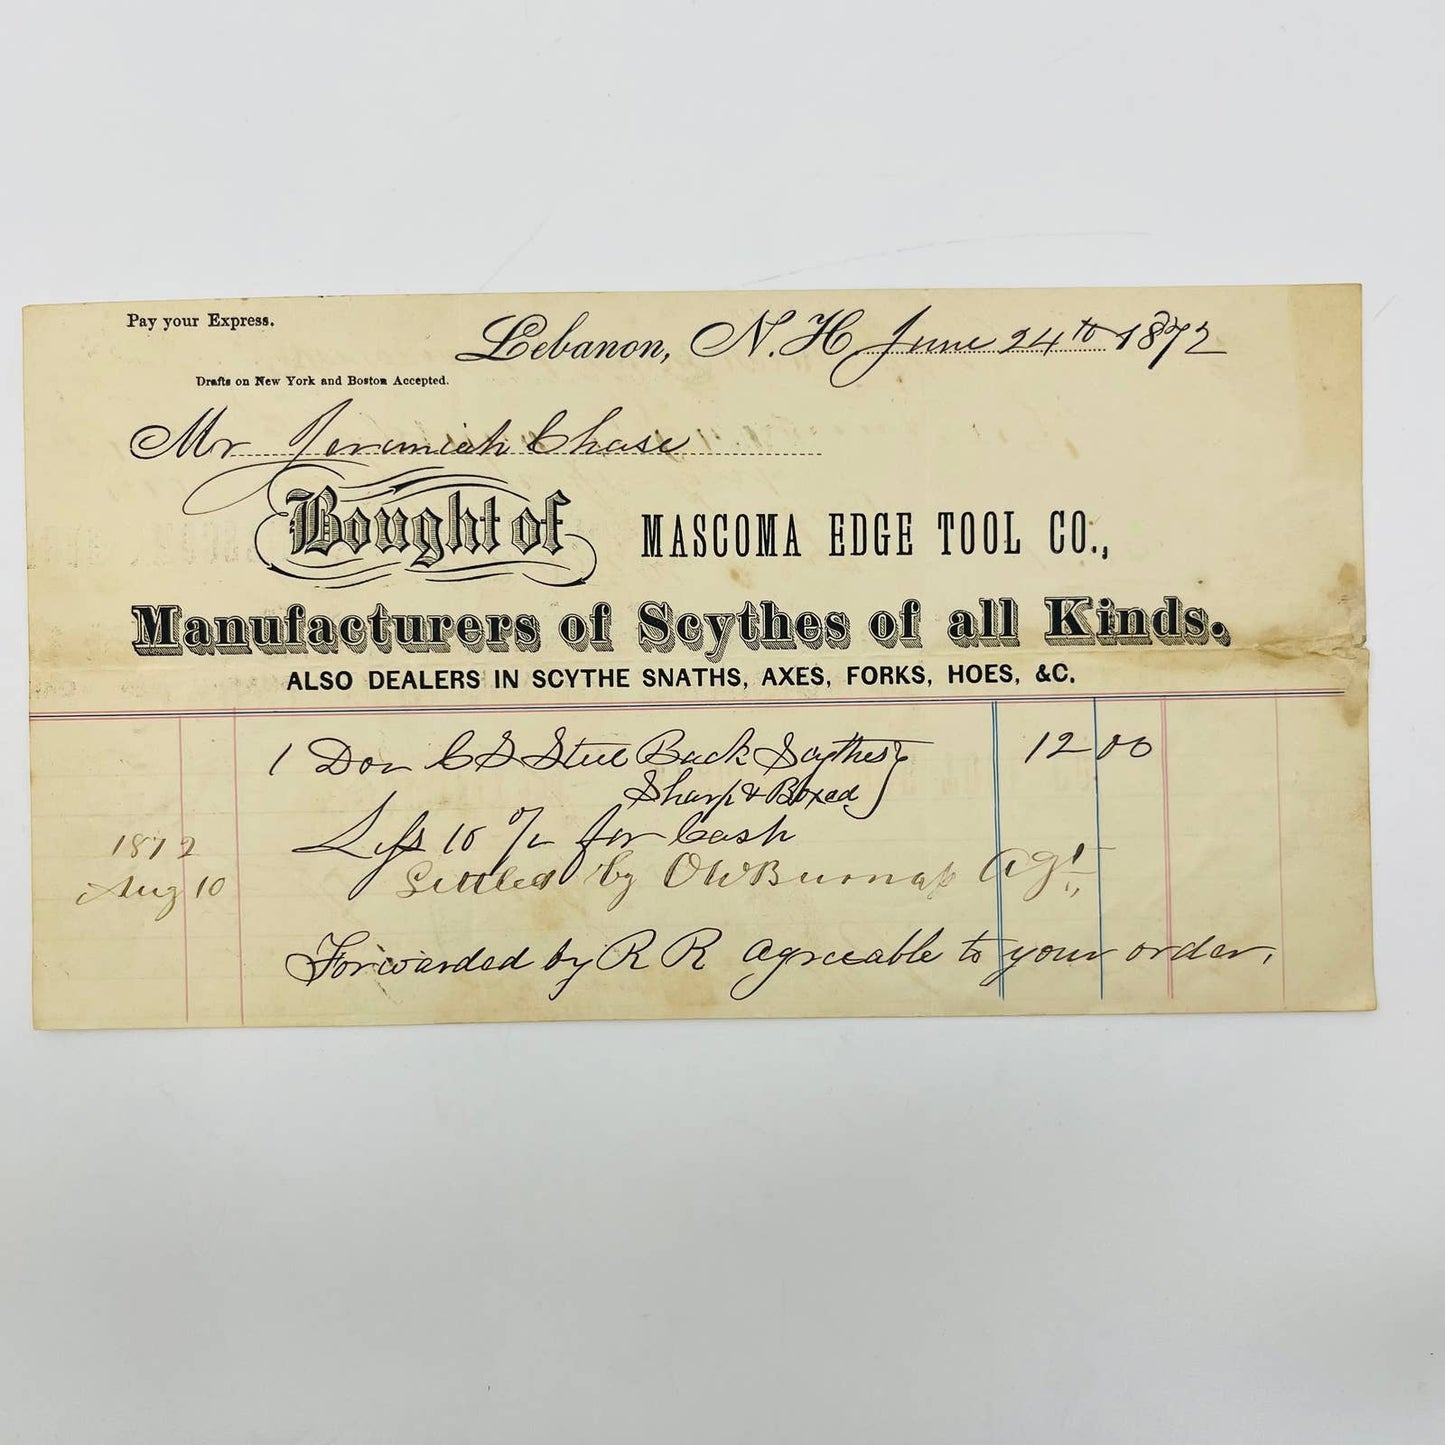 Pay your Express.
Lebanon, N. H. June 24th 1872
Drafts on New York and Boston Accepted.
Mr Jeremiah Chase
Bought of MASCOMA EDGE TOOL CO.,
Manufacturers of Scythes of all Kinds.
ALSO DEALERS IN SCYTHE SNATHS, AXES, FORKS, HOES, &C.
1 Doz C S Steel Back Scythes } 12 00
Sharp & Boxed
Less 10 % for Cash
1872
Aug 10 Settled by O W Burnap Agt
Forwarded by R R agreeable to your order,